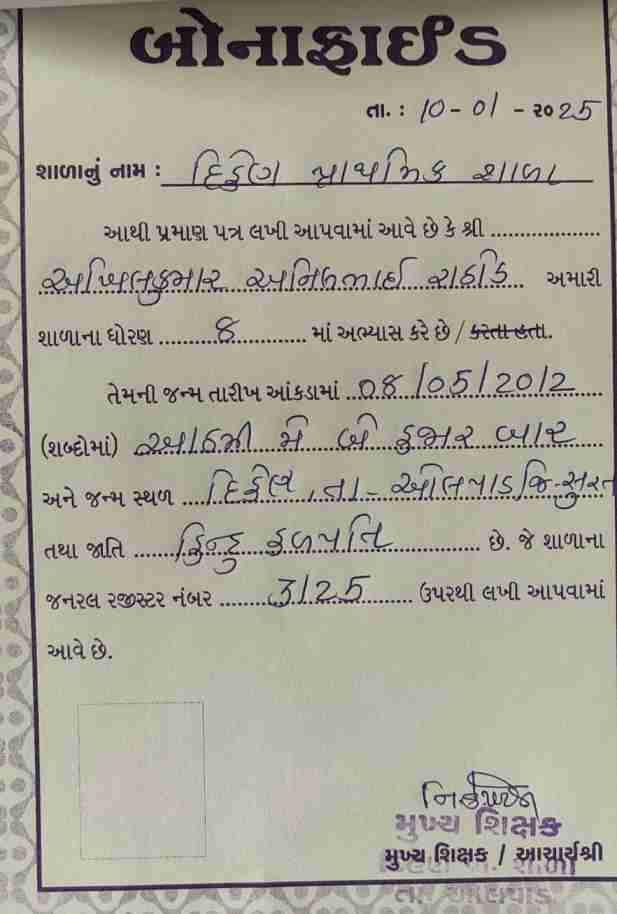 બોનાફાઈડ
તા. : 10 - 01 - ૨૦25
શાળાનું નામ : દિહેણ પ્રાથમિક શાળા
આથી પ્રમાણ પત્ર લખી આપવામાં આવે છે કે શ્રી ....................
અખિલકુમાર અનિલભાઈ રાઠોડ અમારી
શાળાના ધોરણ ......... 8 ............ માં અભ્યાસ કરે છે / કરતા હતા.
તેમની જન્મ તારીખ આંકડામાં ..08/05/2012
(શબ્દોમાં) આઠમી મે બે હજાર બાર
અને જન્મ સ્થળ ...દિહેણ, તા - ઓલપાડ જિ-સુરત
તથા જાતિ ....... હિન્દુ હળપતિ ............... છે. જે શાળાના
જનરલ રજીસ્ટર નંબર ........ 3125 ......... ઉપરથી લખી આપવામાં
આવે છે.
મુખ્ય શિક્ષક
મુખ્ય શિક્ષક / આચાર્યશ્રી
તા. ઓલપાડ